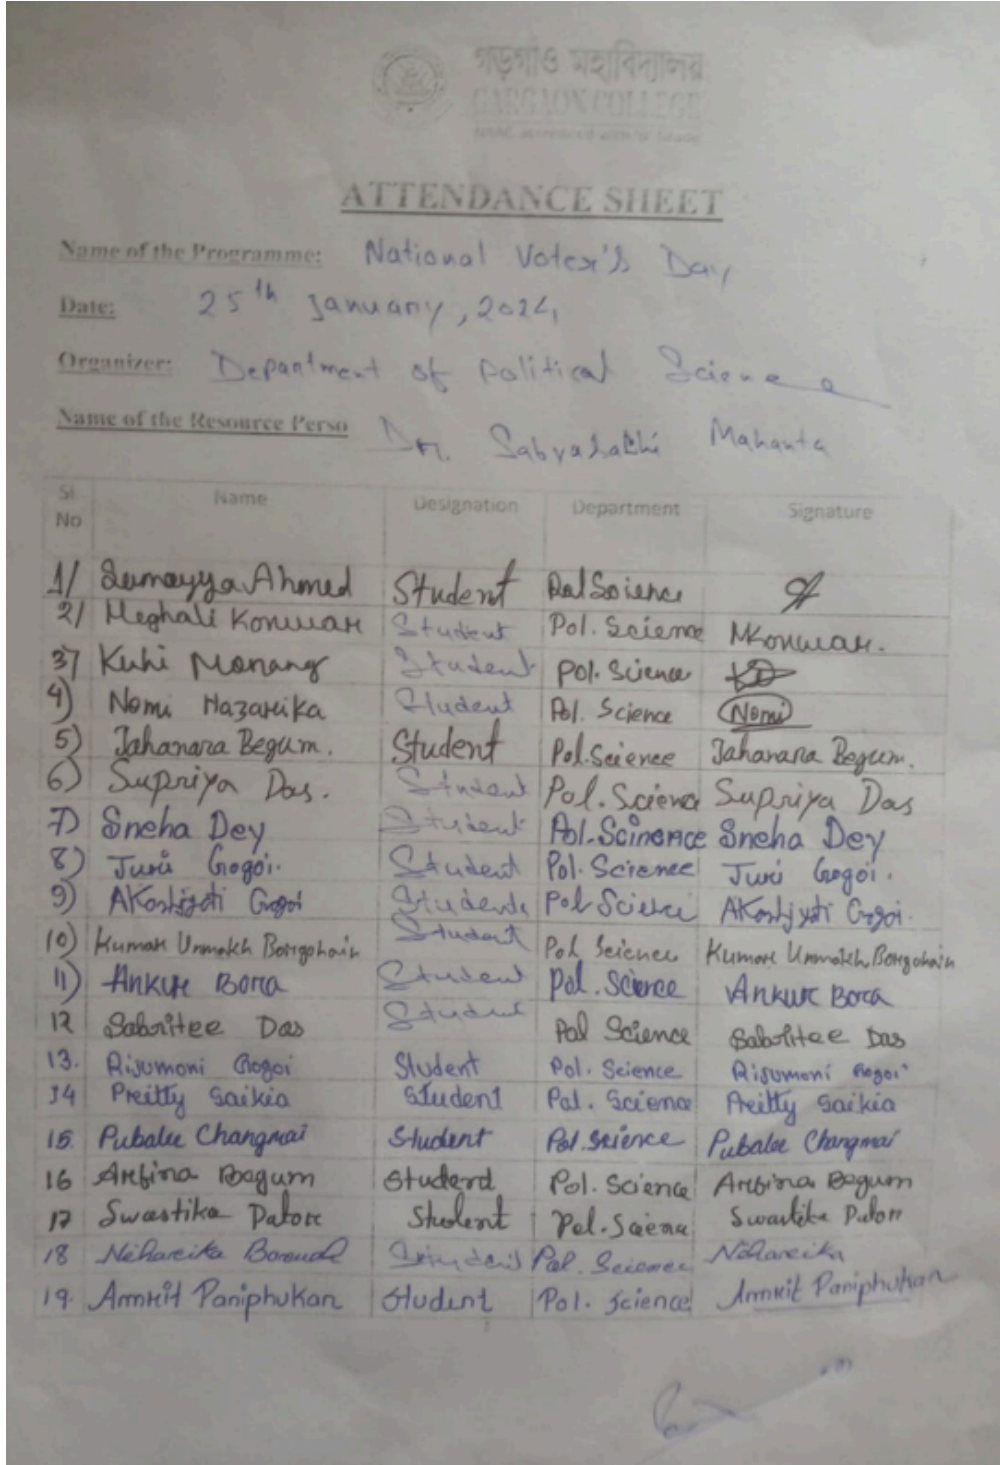 গড়গাঁও মহাবিদ্যালয়
GARGAON COLLEGE
ATTENDANCE SHEET
Name of the Programme: National Voter's Day
Date: 25th January, 2024
Organizer: Department of Political Science
Name of the Resource Perso Dr. Sabyasachi Mahanta
Sl. No Name Designation Department Signature
1/ Sumayya Ahmed Student Pol Science
2/ Meghali Konwar Student Pol. Science MKonwar.
3) Kuhi Monang Student Pol. Science
4) Nomi Hazarika Student Pol. Science Nomi
5) Jahanara Begum. Student Pol. Science Jahanara Begum.
6) Supriya Das. Student Pol. Science Supriya Das
7) Sneha Dey Student Pol. Scinence Sneha Dey
8) Juri Gogoi. Student Pol. Science Juri Gogoi.
9) Gogoi Students Pol Science Gogoi.
10) Kumar Borgohain Student Pol Science Kumar Borgohain
11) Ankur Bora Student Pol. Science Ankur Bora
12 Sabritee Das Student Pol Science Sabritee Das
13. Risumoni Gogoi Student Pol. Science Risumoni Gogoi
14 Preitty Saikia Student Pol. Science Preitty Saikia
15. Pubalee Changmai Student Pol. Science Pubalee Changmai
16 Arfina Begum Student Pol. Science Arfina Begum
17 Swastika Dator Student Pol. Science Swastika Dator
18 Nihareika Student Pol. Science Nihareika
19. Paniphukan Student Pol. Science Paniphukan